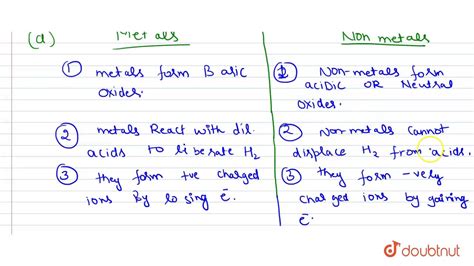 (a) Metals Non metals
① metals form Basic oxides.
① Non-metals form aciDic OR Neutral oxides.
② metals React with dil. acids to liberate H2
② Non-metals cannot displace H2 from acids.
③ they form +ve charged ions By losing ē.
③ they form -vely charged ions by gaining ē.
doubtnut